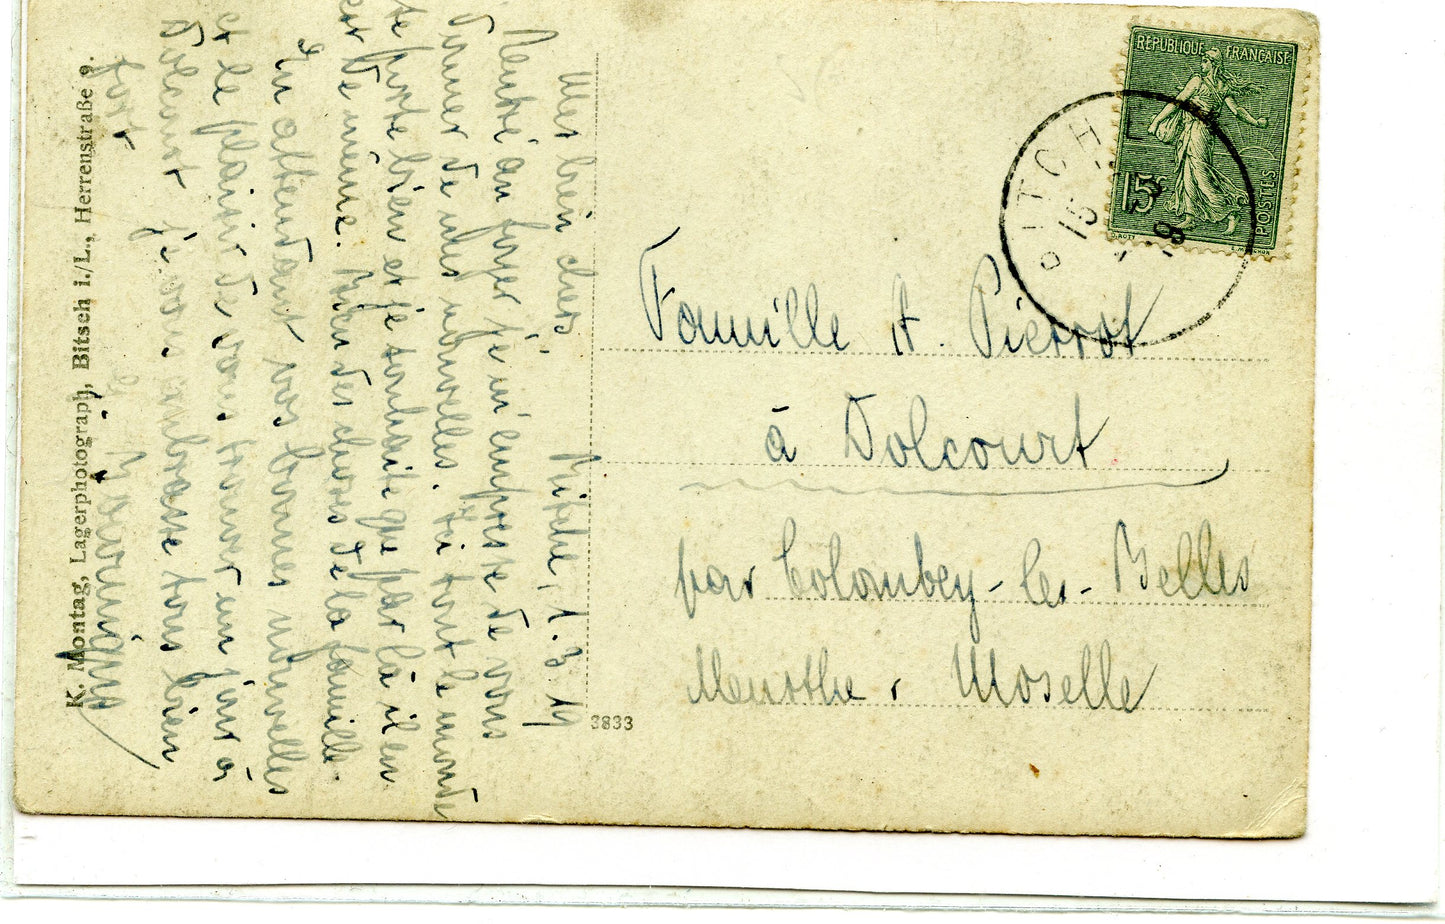 K. Montag, Lagerphotograph, Bitsch i./L., Herrenstraße 9.
Bitche, 1.3.19
Mes bien chers
Rentré au foyer je m'empresse de vous
donner de mes nouvelles. Ici tout le monde
se porte bien et je souhaite que par là il en
est de même. Bien des choses de la famille.
En attendant vos bonnes nouvelles
et le plaisir de vous trouver un jour à
Dolcourt je vous embrasse tous bien
fort
3833
REPUBLIQUE FRANÇAISE
15c
POSTES
BITCHE
15
Famille A. Pierrot
à Dolcourt
par Colombey-les-Belles
Meurthe & Moselle